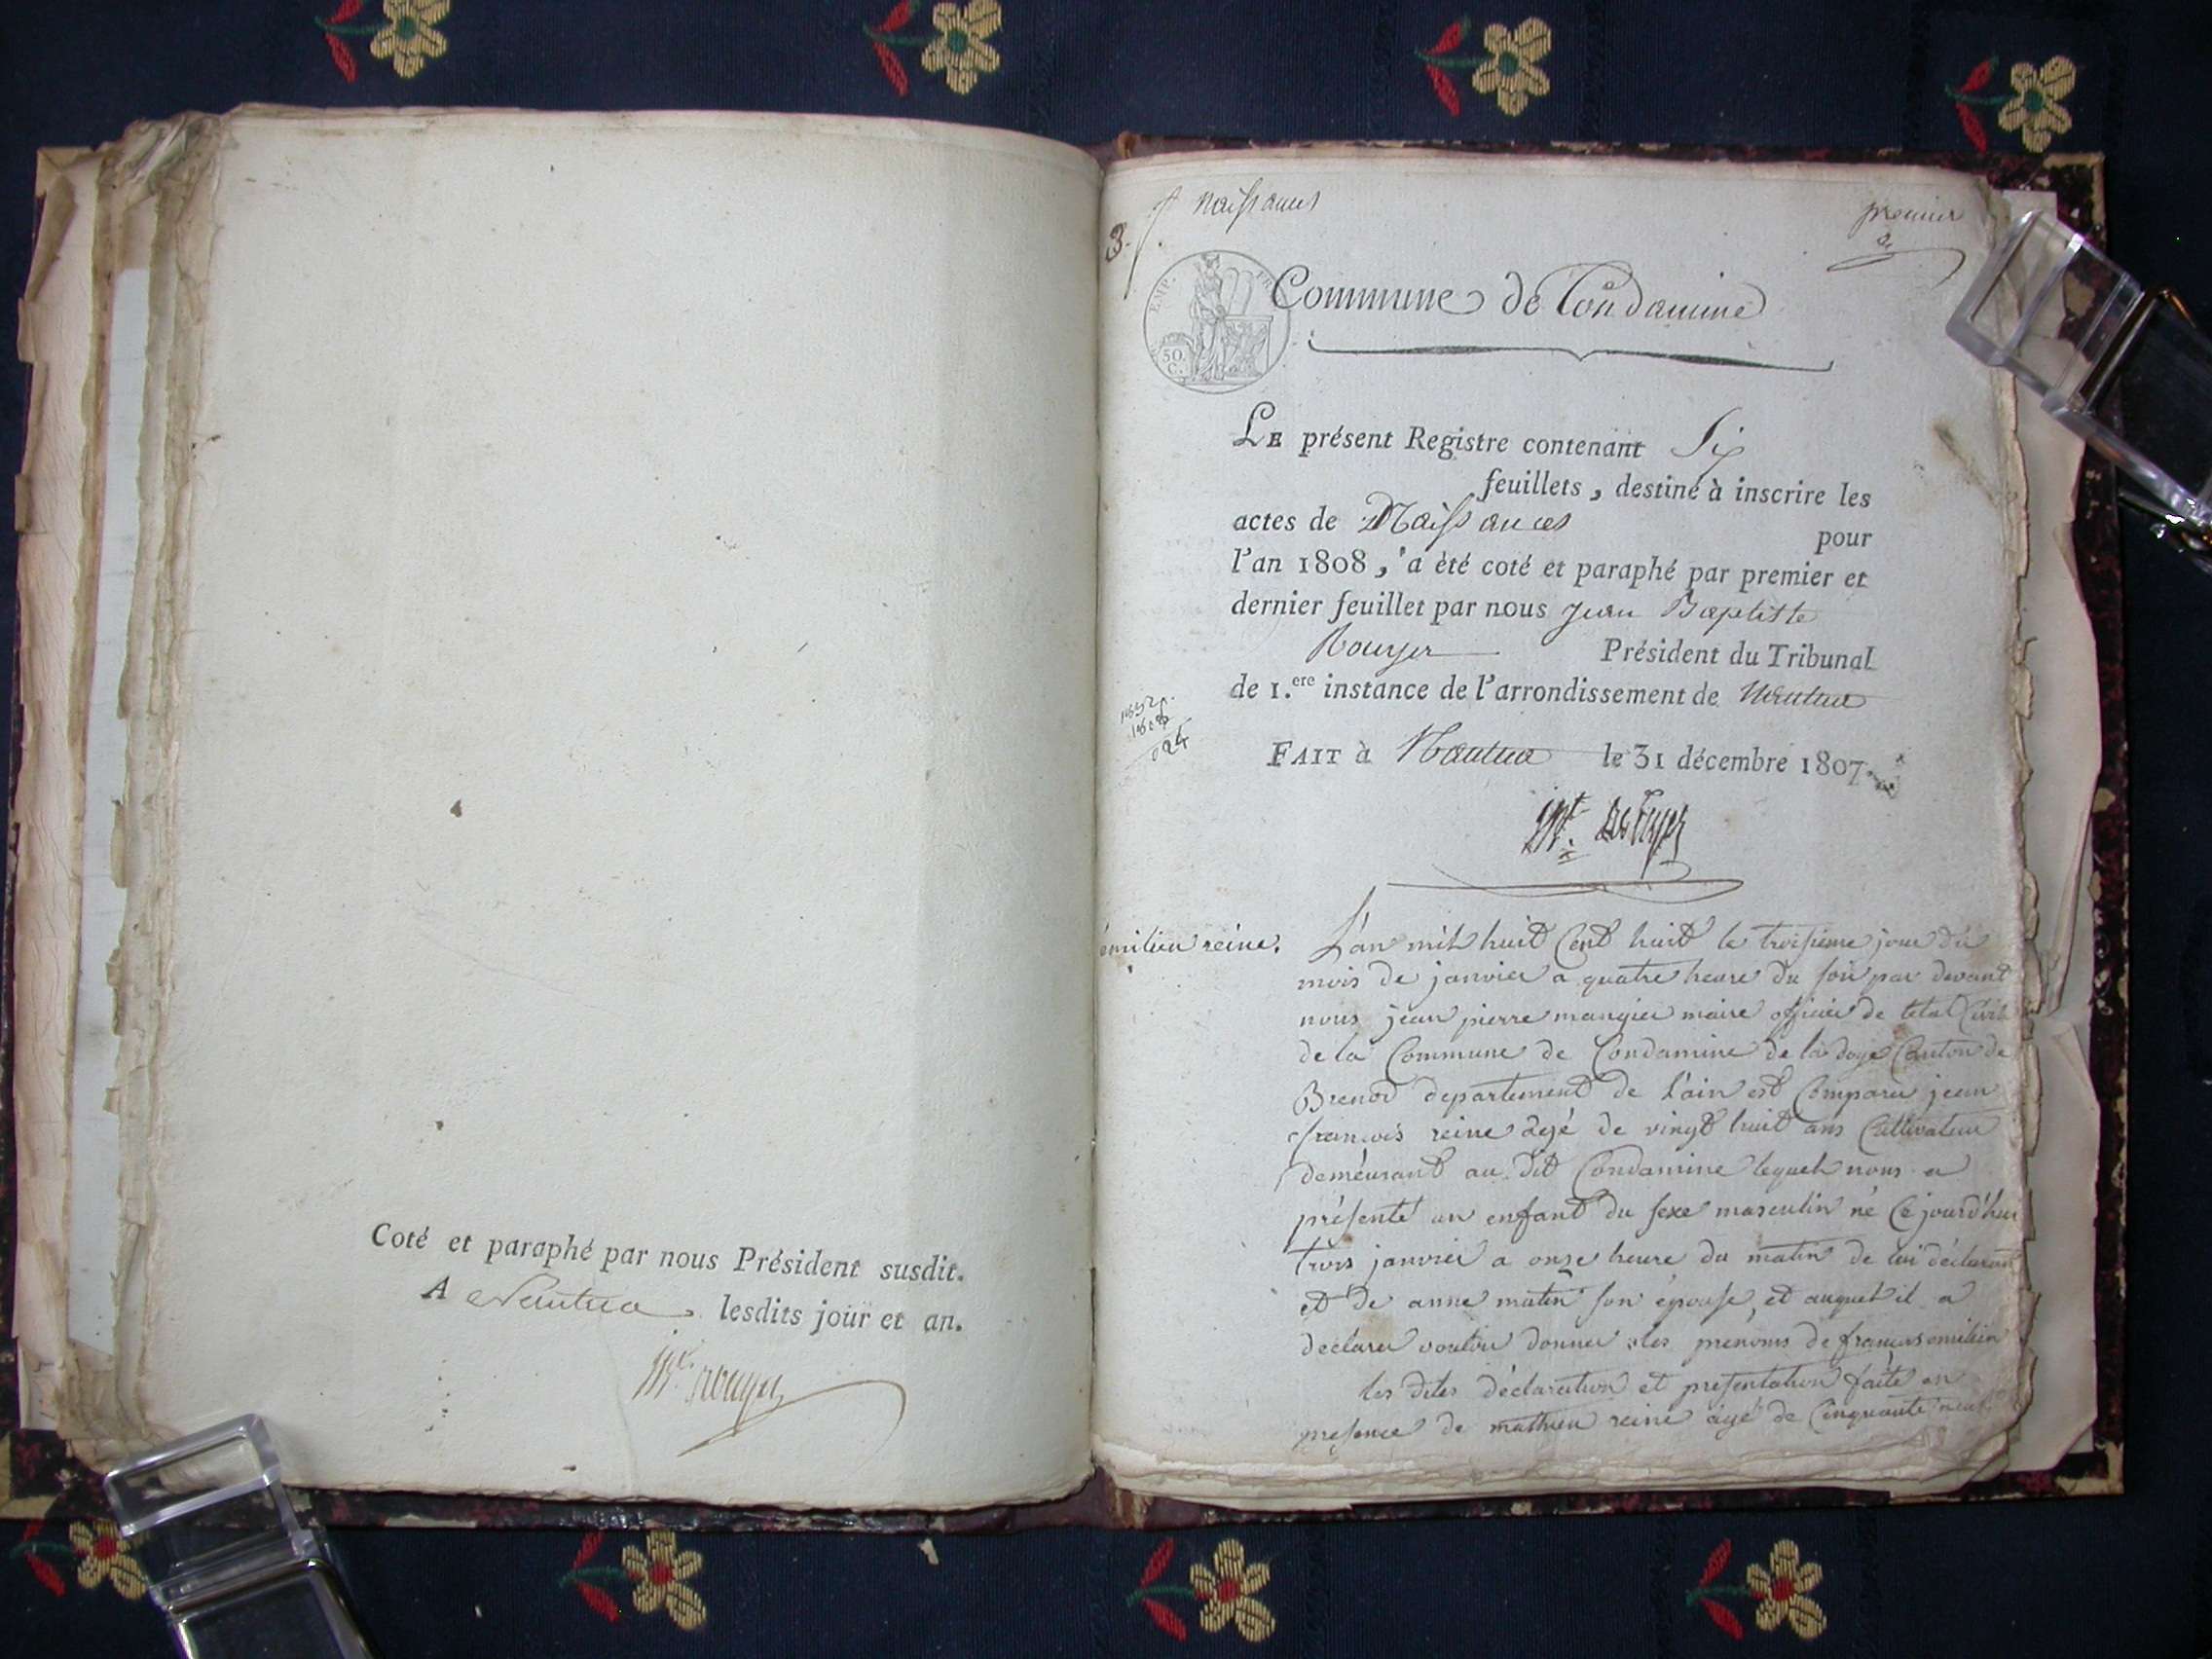 Coté et paraphé par nous Président susdit.
A Nantua lesdits jour et an.
3.
naissances
premier
EMP. FR
50.
C.
Commune de Condamine
LE présent Registre contenant Six
feuillets, destiné à inscrire les
actes de Naissances
pour
l'an 1808, a été coté et paraphé par premier et
dernier feuillet par nous Jean Baptiste
Rouyer Président du Tribunal
de 1.ere instance de l'arrondissement de Nantua
FAIT à Nantua le 31 décembre 1807.
émilien reine.
L'an mil huit Cent huit le troisieme jour du
mois de janvier a quatre heure du soir par devant
nous jean pierre mangier maire officier de letat Civil
de la Commune de Condamine de la doye Canton de
Brenod departement de L'ain est Comparu jean
francois reine agé de vingt huit ans Cultivateur
demeurant au dit Condamine lequel nous a
présenté un enfant du sexe masculin né Ce jourd'hui
trois janvier a onze heure du matin de lui déclarant
et de anne matin son épouse, et auquel il a
declarer vouloir donner les prenoms de francois emilien
les dites déclaration et présentation faite en
presence de mathieu reine agé de Cinquante neuf